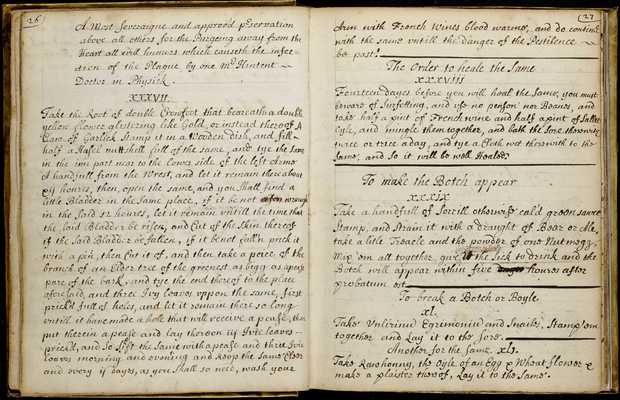 26
A Most Soveraigne and approved pservation
above all others for the Purgeing away from the
heart all evil humers which causeth the infec-
tion of the Plague by one Mr
Doctor in Physick.
XXXVII
Take the Root of double Crowfoot that beareth a double
yellow flower glistering like Gold, or instead thereof A
Clave of Garlick stamp it in a Wooden dish, and fill
half a Hasel nuttshell full of the same, and tye the same
in the inn part near to the lower side of the left Arme
A handfull from the Wrest, and let it remain there about
xij houres, then open the same, and you shall find a
little Bladder in the same place, if it be not
in the said 12 houres, let it remain untill the time that
the said Bladder be risen, and Cut of the Skin thereof
if the said Bladder be fallen, if it be not fall'n prick it
with a pin, then Cut it of, and then take a peece of the
branch of an Elder tree of the greenest, as bigg as a peaze
pare of the bark, and tye the end thereof to the place
aforesaid, and three Ivy leaves uppon the same, first
prickt full of holes, and let it remain there so long
untill it have made a hole that will receive a pease, then
put therein a pease and lay thereon iij Ivie leaves
prickt, and so shift the same with a pease and three Ivie
leaves morning and evening and keep the same Close
and every ij dayes, as you shall see need, wash your
27
Arm with French wines blood warme, and do continue
with the same untill the danger of the Pestilence
be past.
The Order to heale the Same
XXXVIII
Fourteen dayes before you will heal the same, you must
beware of Surfetting, and use no penson nor Beanes, and
take half a pint of French wine and half a pint of Sallet
Oyle, and mingle them together, and bath the Sore therewith
twice or trice a day, and tye a Cloth wet therewith to the
same, and so it will be well Healed.
To make the Botch appear
XXXIX
Take a handfull of Sorrill otherwise cal'd green sawce
Stamp, and strain it with a draught of Beer or Ale,
take a litle Treacle and the powder of one Nutmegg,
Mix 'em all together, give it the Sick to drink and the
Botch will appear within five houres after
probatum est
To break a Botch or Boyle
XL.
Take Egrimoniu and Snailes, Stamp 'em
together and Lay it to the Sore.
Another for the Same XLj.
Take Rawhonny, the Oyle of an Egg & Wheat flower &
make a plaister thereof, Lay it to the Same.